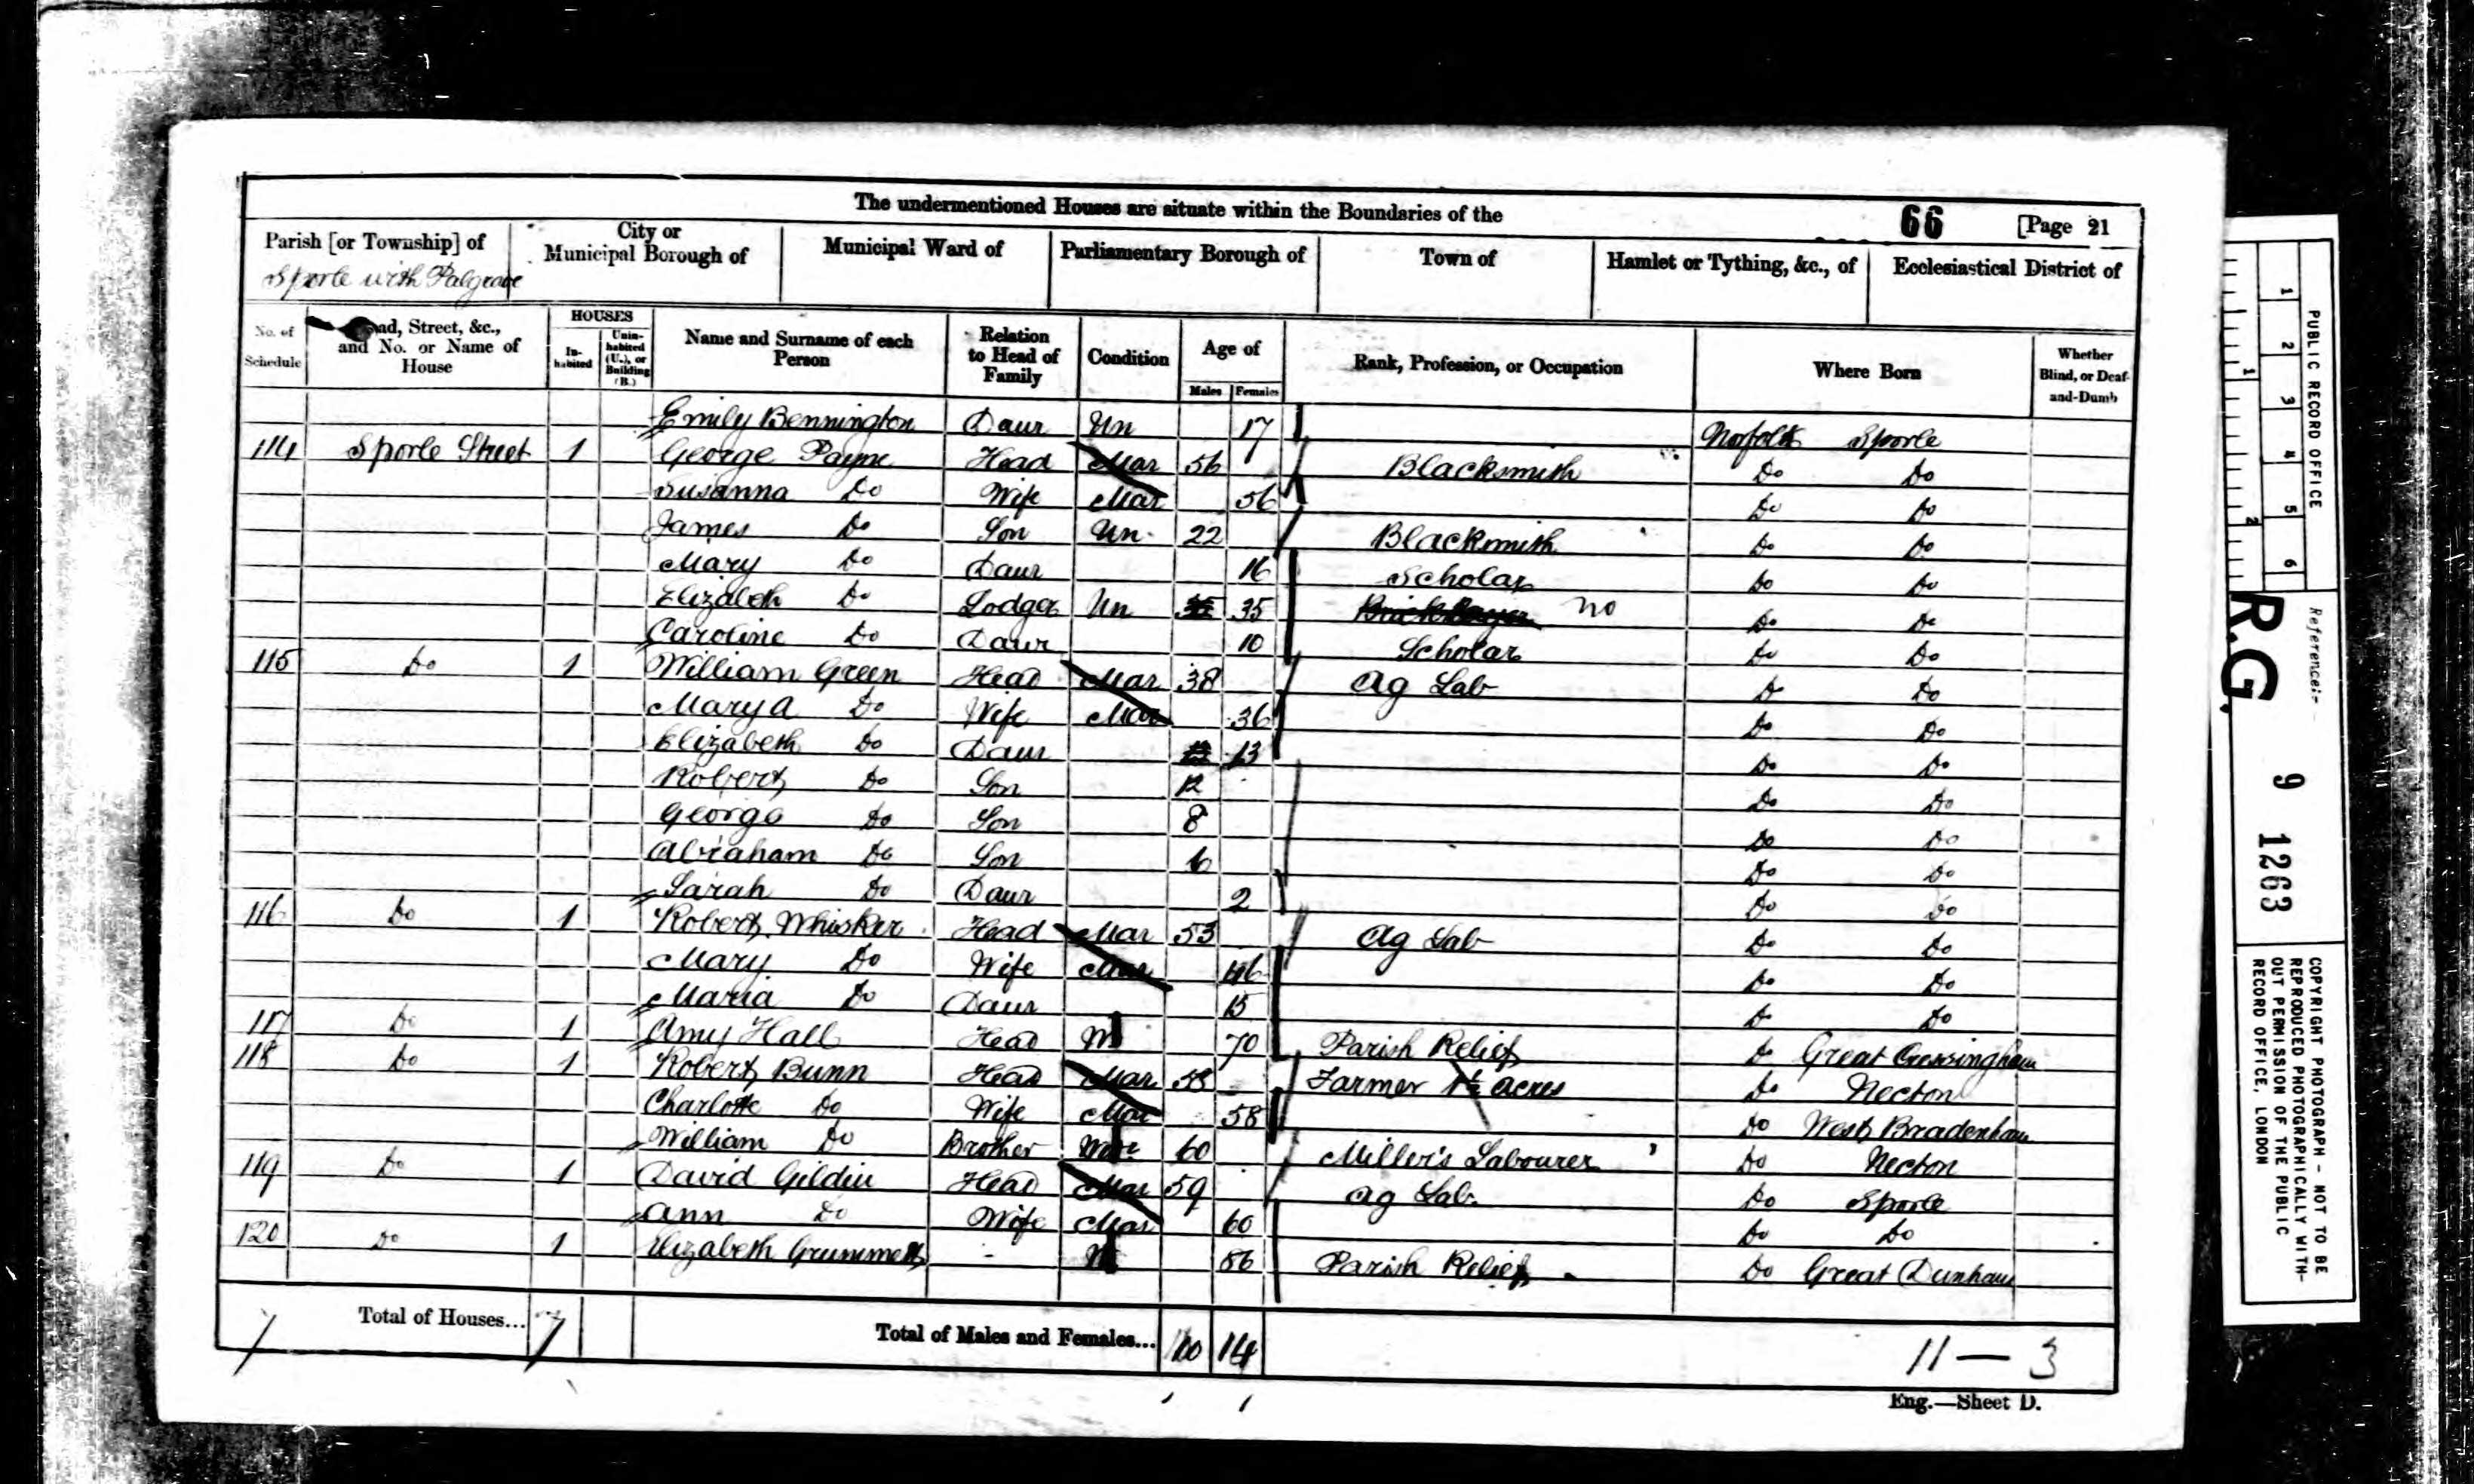 The undermentioned Houses are situate within the Boundaries of the
66 [Page 21
Parish [or Township] of City or Municipal Borough of Municipal Ward of Parliamentary Borough of Town of Hamlet or Tything, &c., of Ecclesiastical District of
Sporle with Palgrave
No. of Schedule ad, Street, &c., and No. or Name of House HOUSES In-habited Unin-habited (U.), or Building (B.) Name and Surname of each Person Relation to Head of Family Condition Age of Males Females Rank, Profession, or Occupation Where Born Whether Blind, or Deaf-and-Dumb
Emily Bennington Daur Un 17 Norfolk Sporle
114 Sporle Street 1 George Payne Head Mar 56 Blacksmith Do Do
Susanna Do Wife Mar 56 Do Do
James Do Son Un 22 Blacksmith Do Do
Mary Do Daur 16 Scholar Do Do
Elizabeth Do Lodger Un 35 35 no Do Do
Caroline Do Daur 10 Scholar Do Do
115 Do 1 William Green Head Mar 38 Ag Lab Do Do
Mary A Do Wife Mar 36 Do Do
Elizabeth Do Daur 13 Do Do
Robert Do Son 12 Do Do
George Do Son 8 Do Do
Abraham Do Son 6 Do Do
Sarah Do Daur 2 Do Do
116 Do 1 Robert Whisker Head Mar 53 Ag Lab Do Do
Mary Do Wife Mar 46 Do Do
Maria Do Daur 15 Do Do
117 Do 1 Amy Hall Head W 70 Parish Relief Do Great Cressingham
118 Do 1 Robert Bunn Head Mar 58 Farmer acres Do Necton
Charlotte Do Wife Mar 58 Do West Bradenham
William Do Brother 60 Miller's Labourer Do Necton
119 Do 1 David Gildin Head Mar 59 Ag Lab. Do Sporle
Ann Do Wife Mar 60 Do Do
120 Do 1 Elizabeth Grummett - W 86 Parish Relief Do Great Dunham
7 Total of Houses... 7 Total of Males and Females... 10 14 11 — 3
Eng.—Sheet D.
1 2 3 4 5 6
1 2
PUBLIC RECORD OFFICE
Reference:-
R.G. 9 1263
COPYRIGHT PHOTOGRAPH - NOT TO BE
REPRODUCED PHOTOGRAPHICALLY WITH-
OUT PERMISSION OF THE PUBLIC
RECORD OFFICE, LONDON